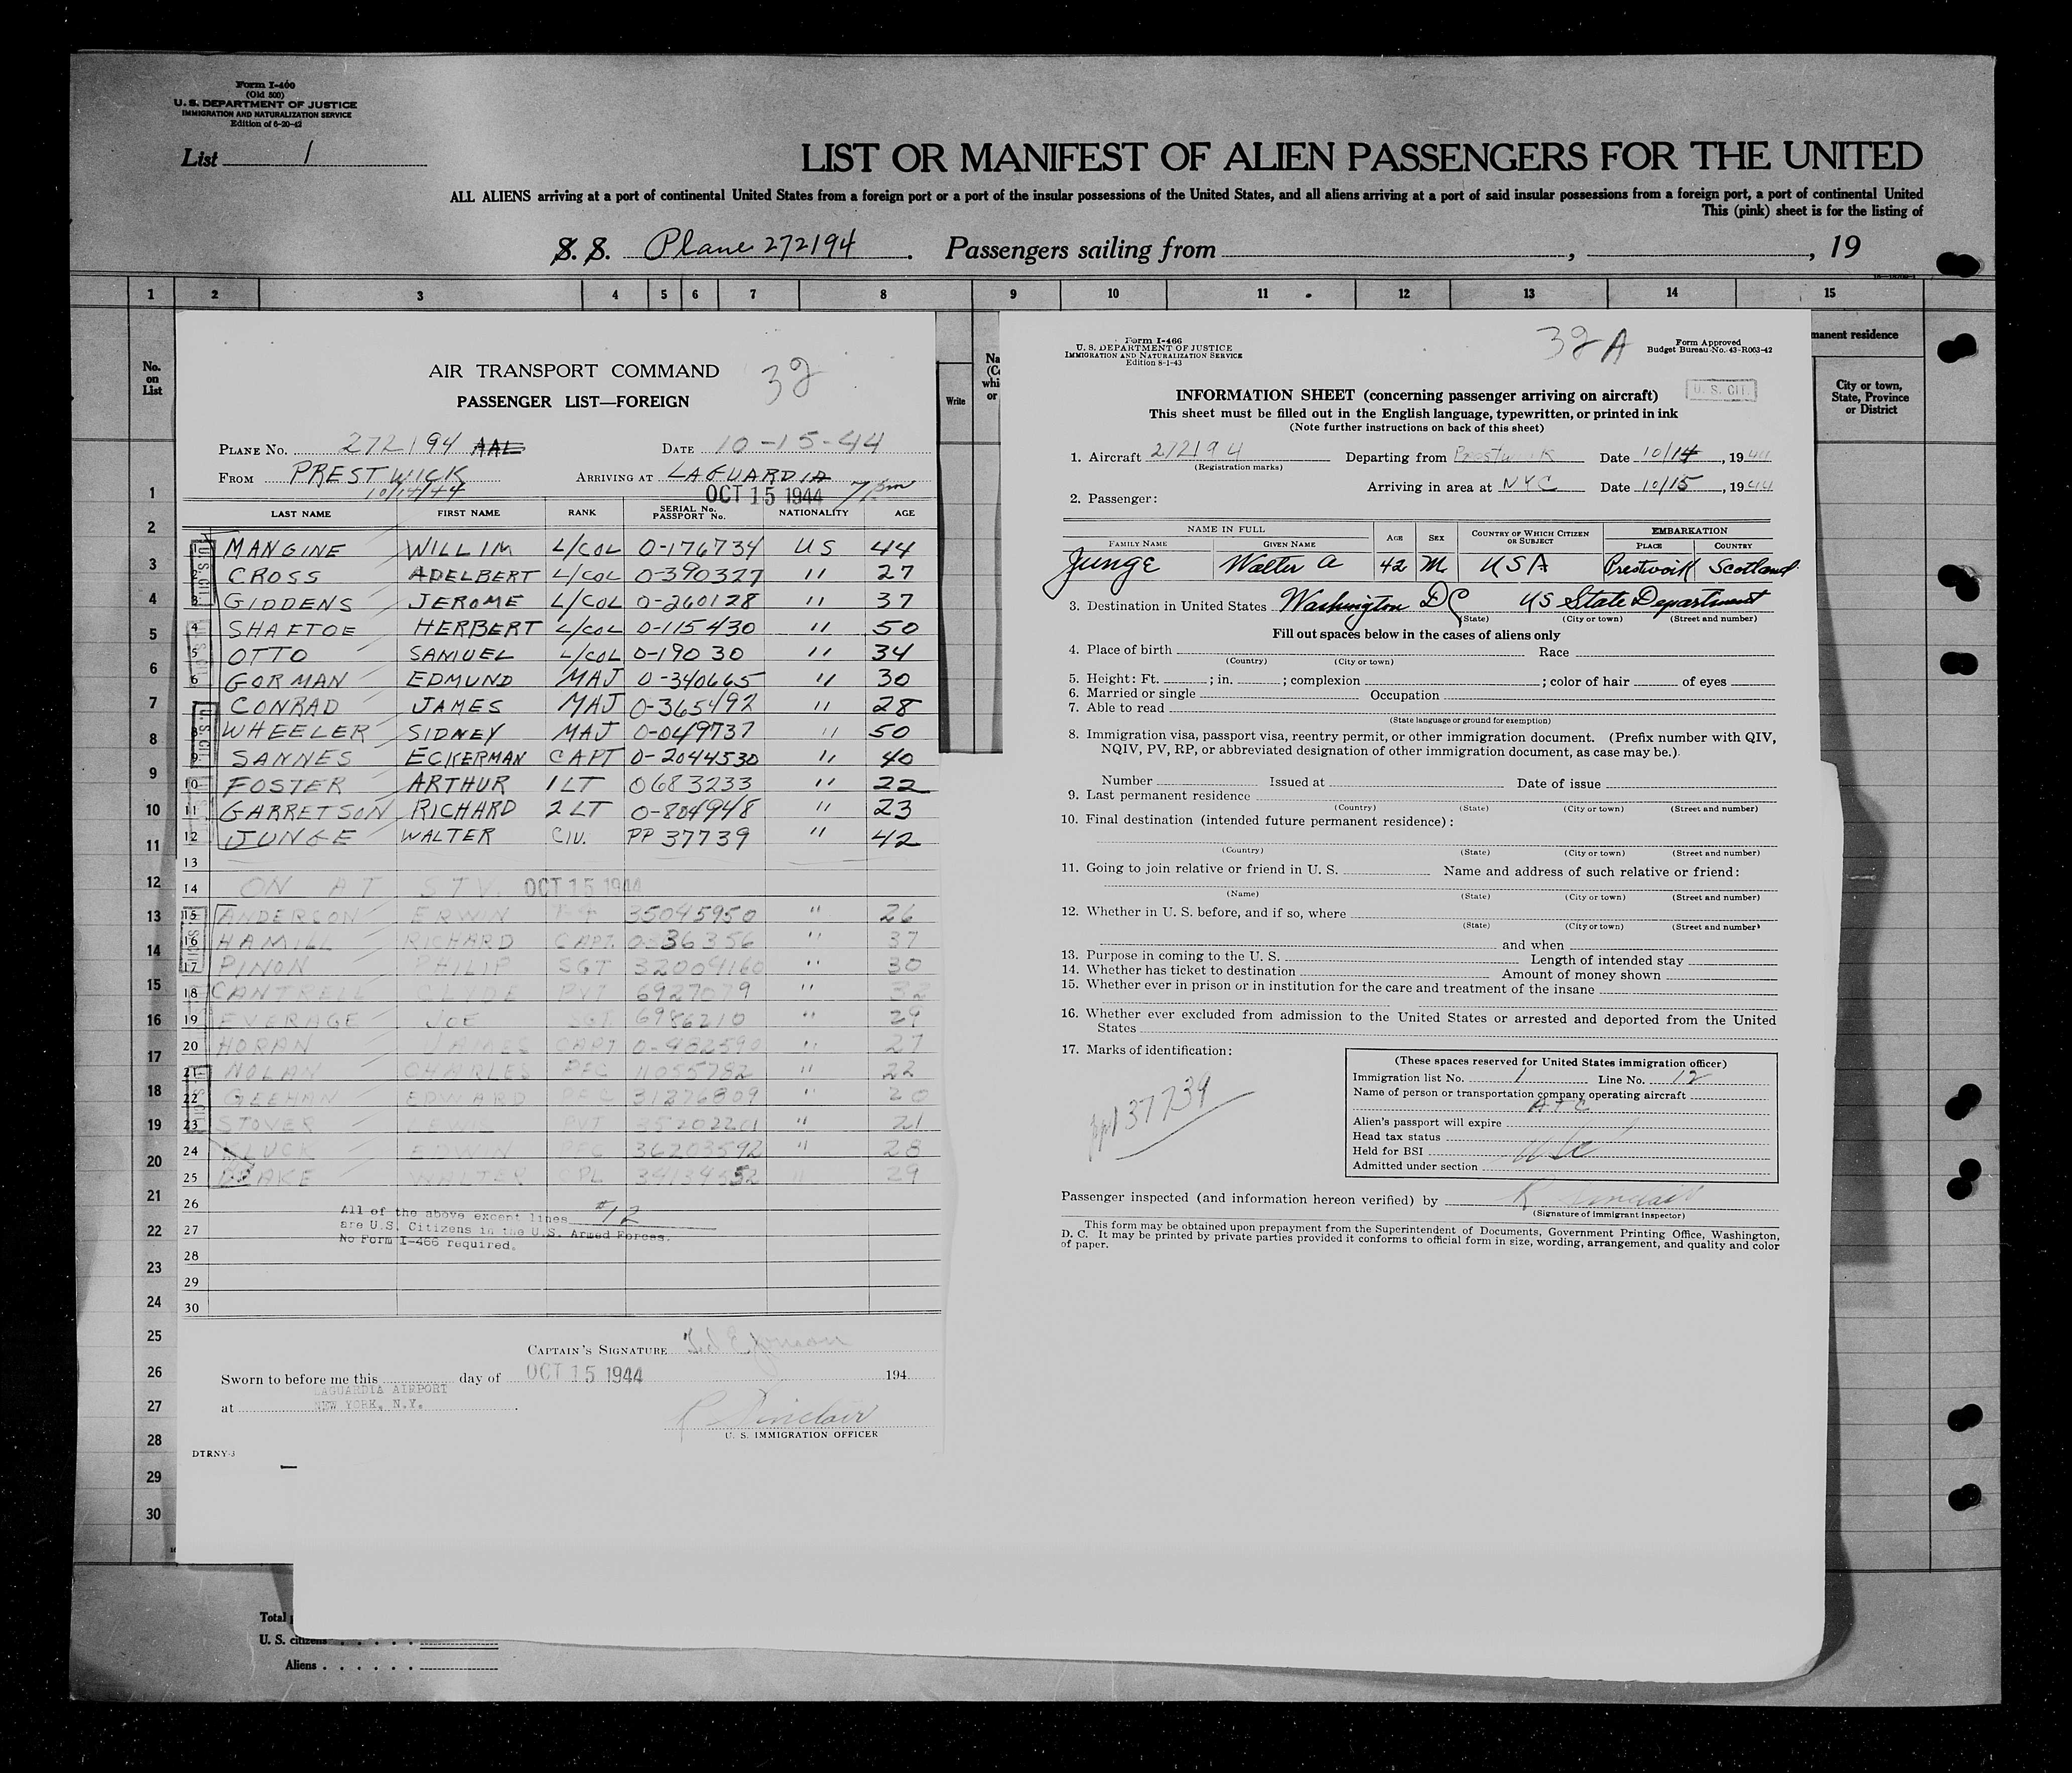 Form I-460
(Old 500)
U. S. DEPARTMENT OF JUSTICE
IMMIGRATION AND NATURALIZATION SERVICE
Edition of 6-20-42
List 1
LIST OR MANIFEST OF ALIEN PASSENGERS FOR THE UNITED
ALL ALIENS arriving at a port of continental United States from a foreign port or a port of the insular possessions of the United States, and all aliens arriving at a port of said insular possessions from a foreign port, a port of continental United
This (pink) sheet is for the listing of
S. S. Plane 272194 . Passengers sailing from , , 19
1 2 3 4 5 6 7 8 9 10 11 12 13 14 15
No. on List
Write
manent residence
City or town, State, Province or District
1
2
3
4
5
6
7
8
9
10
11
12
13
14
15
16
17
18
19
20
21
22
23
24
25
26
27
28
29
30
AIR TRANSPORT COMMAND
PASSENGER LIST—FOREIGN
PLANE NO. 272194 AAL DATE 10-15-44
FROM PRESTWICK ARRIVING AT LAGUARDIA
10/14/44 OCT 15 1944 7pm
LAST NAME FIRST NAME RANK SERIAL No. PASSPORT No. NATIONALITY AGE
1 MANGINE WILLIM L/COL 0-176734 US 44
2 CROSS ADELBERT L/COL 0-390327 " 27
3 GIDDENS JEROME L/COL 0-260128 " 37
4 SHAFTOE HERBERT L/COL 0-115430 " 50
5 OTTO SAMUEL L/COL 0-190 30 " 34
6 GORMAN EDMUND MAJ 0-340665 " 30
7 CONRAD JAMES MAJ 0-365492 " 28
8 WHEELER SIDNEY MAJ 0-049737 " 50
9 SANNES ECKERMAN CAPT 0-2044530 " 40
10 FOSTER ARTHUR 1LT 0683233 " 22
11 GARRETSON RICHARD 2 LT 0-804948 " 23
12 JUNGE WALTER CIV. PP 37739 " 42
13
14 ON AT STV. OCT 15 1944
15 ANDERSON ERWIN 35045950 " 26
16 HAMILL RICHARD CAPT. 36356 " 37
17 PINON PHILIP SGT 32009160 " 30
18 CANTRELL CLYDE PVT 6927079 " 32
19 EVERAGE JOE SGT. 6986210 " 29
20 HORAN JAMES CAPT 0-482590 " 27
21 NOLAN CHARLES PFC 11055782 " 22
22 GEEHAN EDWARD PFC 31276809 " 20
23 STOVER PVT 35202201 " 21
24 KLUCK EDWIN PFC 36203592 " 28
25 DRAKE WALTER CPL 34134552 " 29
26
27
28
29
30
All of the above except lines #12
are U.S. Citizens in the U.S. Armed Forces.
No Form I-466 required.
CAPTAIN'S SIGNATURE
Sworn to before me this day of OCT 15 1944 194
at LAGUARDIA AIRPORT
NEW YORK, N.Y.
R Sinclair
U. S. IMMIGRATION OFFICER
DTRNY-3
Total
U. S. citizens
Aliens
Form I-466
U. S. DEPARTMENT OF JUSTICE
IMMIGRATION AND NATURALIZATION SERVICE
Edition 8-1-43
Form Approved
Budget Bureau No. 43-R063-42
INFORMATION SHEET (concerning passenger arriving on aircraft) U. S. CIT.
This sheet must be filled out in the English language, typewritten, or printed in ink
(Note further instructions on back of this sheet)
1. Aircraft 272194 Departing from Prestwick Date 10/14, 1944
(Registration marks)
Arriving in area at NYC Date 10/15, 1944
2. Passenger:
NAME IN FULL AGE SEX COUNTRY OF WHICH CITIZEN OR SUBJECT EMBARKATION
FAMILY NAME GIVEN NAME PLACE COUNTRY
Junge Walter A 42 M USA Prestwick Scotland
3. Destination in United States Washington DC US State Department
(State) (City or town) (Street and number)
Fill out spaces below in the cases of aliens only
4. Place of birth Race
(Country) (City or town)
5. Height: Ft. ; in. ; complexion ; color of hair of eyes
6. Married or single Occupation
7. Able to read
(State language or ground for exemption)
8. Immigration visa, passport visa, reentry permit, or other immigration document. (Prefix number with QIV,
NQIV, PV, RP, or abbreviated designation of other immigration document, as case may be.)
Number Issued at Date of issue
9. Last permanent residence
(Country) (State) (City or town) (Street and number)
10. Final destination (intended future permanent residence):
(Country) (State) (City or town) (Street and number)
11. Going to join relative or friend in U. S. Name and address of such relative or friend:
(Name) (State) (City or town) (Street and number)
12. Whether in U. S. before, and if so, where
(State) (City or town) (Street and number)
and when
13. Purpose in coming to the U. S. Length of intended stay
14. Whether has ticket to destination Amount of money shown
15. Whether ever in prison or in institution for the care and treatment of the insane
16. Whether ever excluded from admission to the United States or arrested and deported from the United
States
17. Marks of identification:
pp137739
(These spaces reserved for United States immigration officer)
Immigration list No. 1 Line No. 12
Name of person or transportation company operating aircraft
ATC
Alien's passport will expire
Head tax status
Held for BSI
Admitted under section
Passenger inspected (and information hereon verified) by R Sinclair
(Signature of Immigrant Inspector)
This form may be obtained upon prepayment from the Superintendent of Documents, Government Printing Office, Washington,
D. C. It may be printed by private parties provided it conforms to official form in size, wording, arrangement, and quality and color
of paper.